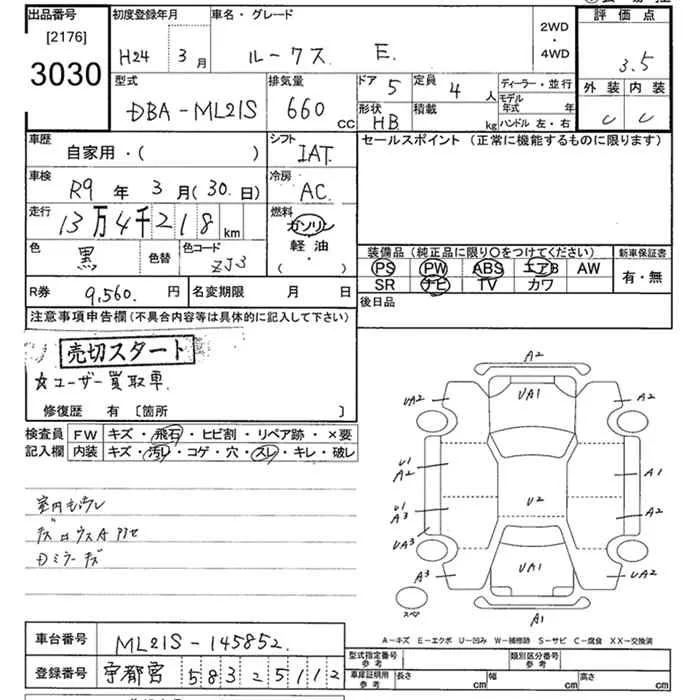 出品番号 初度登録年月 車名・グレード 2WD・4WD 評価点
[2176]
3030 H24 3月 ルークス E. 3.5
型式 排気量 ドア 5 定員 4人 ディーラー・並行 外装 内装
DBA-ML21S 660cc 形状 HB 積載 kg モデル年式 年 ハンドル 左・右 C C
車歴 シフト セールスポイント (正常に機能するものに限ります)
自家用・( ) IAT
車検 R9年 3月(30日) 冷房 AC
走行 13万4千218km 燃料 ガソリン 軽油 ( ・ )
色 黒 色替 色コード ZJ3
装備品 (純正品に限り○をつけてください) 新車保証書
PS PW ABS エアB AW 有・無
SR ナビ TV カワ
R券 9,560.円 名変期限 月 日 後日品
注意事項申告欄 (不具合内容等は具体的に記入して下さい)
売切スタート
☆ユーザー買取車.
修復歴 有 [箇所 ]
検査員 FW キズ・飛石・ヒビ割・リペア跡・×要
記入欄 内装 キズ・汚レ・コゲ・穴・スレ・キレ・破レ
Dミラーキズ
A2
UA2 UA1 A2
U1 A2 A1
U1 A3 U2 A2
UA3
A3 UA1 UA2
スペア A1
A-キズ E-エクボ U-凹み W-補修跡 S-サビ C-腐食 XX-交換済
車台番号 ML21S-145852.
登録番号 宇都宮 583 2 5112
型式指定番号 参考 類別区分番号 参考
車庫証明用 参考 長さ cm 幅 cm 高さ cm